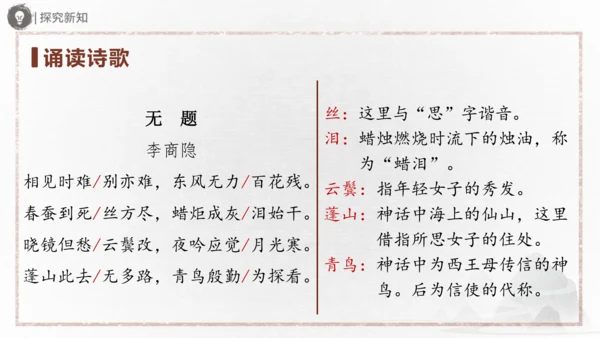 探究新知
诵读诗歌
无 题
李商隐
相见时难/别亦难，东风无力/百花残。
春蚕到死/丝方尽，蜡炬成灰/泪始干。
晓镜但愁/云鬓改，夜吟应觉/月光寒。
蓬山此去/无多路，青鸟殷勤/为探看。
丝：这里与“思”字谐音。
泪：蜡烛燃烧时流下的烛油，称
为“蜡泪”。
云鬓：指年轻女子的秀发。
蓬山：神话中海上的仙山，这里
借指所思女子的住处。
青鸟：神话中为西王母传信的神
鸟。后为信使的代称。